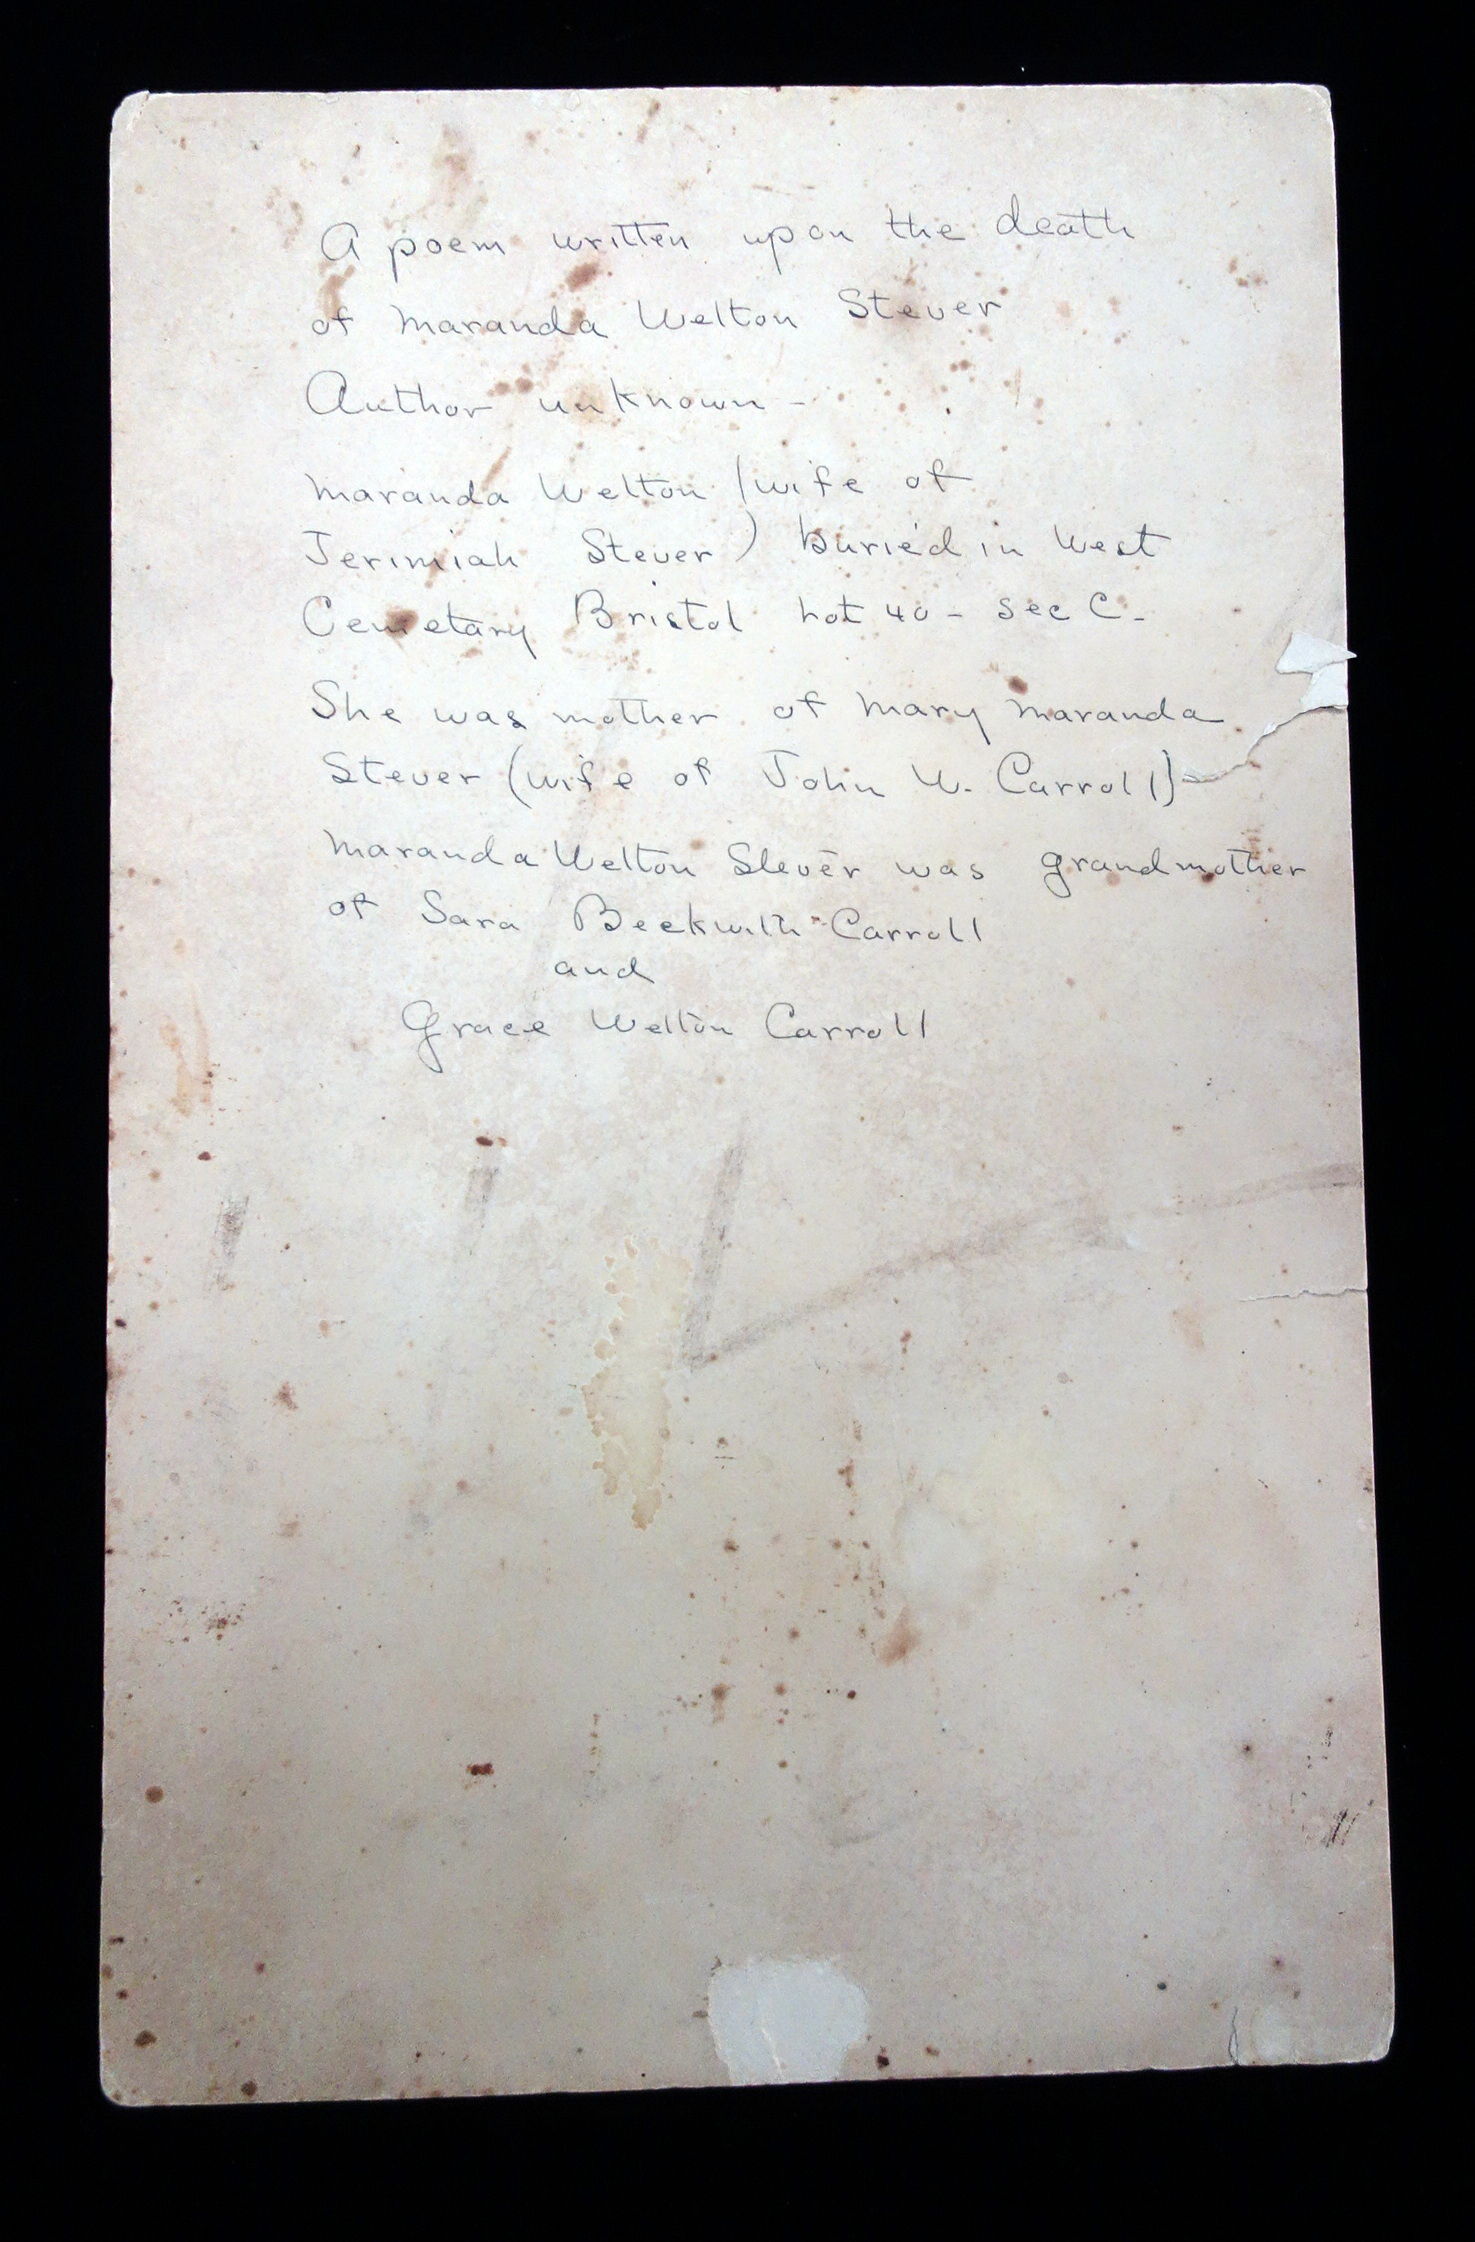 A poem written upon the death
of Maranda Welton Stever
Author unknown -
Maranda Welton (wife of
Jerimiah Stever) buried in West
Cemetary Bristol Lot 40 - Sec C.
She was mother of Mary Maranda
Stever (wife of John W. Carroll)-
Maranda Welton Stever was grandmother
of Sara Beckwith Carroll
and
Grace Welton Carroll